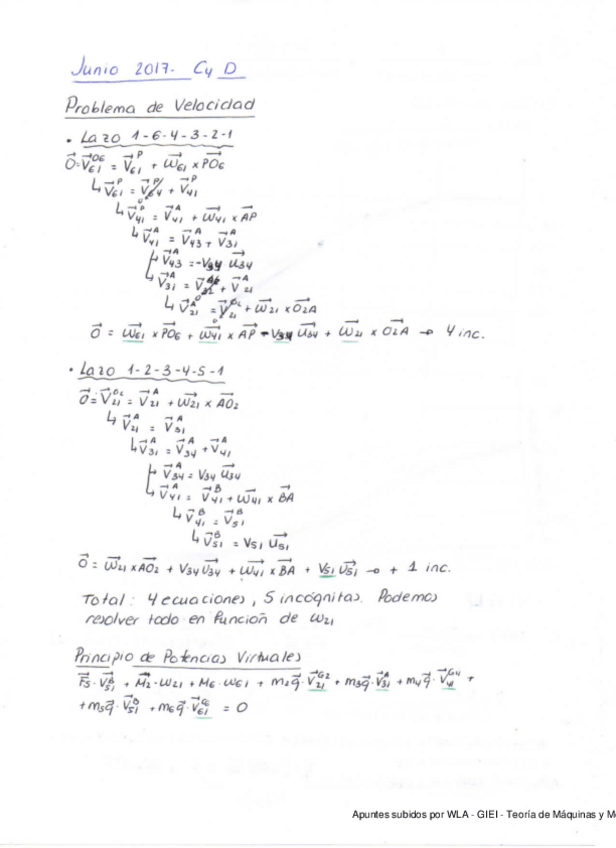 Junio 2017. C y D
Problema de Velocidad
• Lazo 1-6-4-3-2-1
0⃗=V⃗₆₁^O6 = V⃗₆₁^P + ω⃗₆₁ × PO₆
↳ V⃗₆₁^P = V⃗₆₄^P + V⃗₄₁^P
↳ V⃗₄₁^P = V⃗₄₁^A + ω⃗₄₁ × AP
↳ V⃗₄₁^A = V⃗₄₃^A + V⃗₃₁^A
↳ V⃗₄₃^A = -V₃₄ u⃗₃₄
↳ V⃗₃₁^A = V⃗₃₂^A + V⃗₂₁^A
↳ V⃗₂₁^A = V⃗₂₁^O2 + ω⃗₂₁ × O₂A
0⃗ = ω⃗₆₁ × PO₆ + ω⃗₄₁ × AP - V₃₄ u⃗₃₄ + ω⃗₂₁ × O₂A → 4 inc.
• Lazo 1-2-3-4-5-1
0⃗=V⃗₂₁^O2 = V⃗₂₁^A + ω⃗₂₁ × AO₂
↳ V⃗₂₁^A = V⃗₃₁^A
↳ V⃗₃₁^A = V⃗₃₄^A + V⃗₄₁^A
↳ V⃗₃₄^A = V₃₄ u⃗₃₄
↳ V⃗₄₁^A = V⃗₄₁^B + ω⃗₄₁ × BA
↳ V⃗₄₁^B = V⃗₅₁^B
↳ V⃗₅₁^B = V₅₁ u⃗₅₁
0⃗ = ω⃗₂₁ × AO₂ + V₃₄ u⃗₃₄ + ω⃗₄₁ × BA + V₅₁ u⃗₅₁ → + 1 inc.
Total: 4 ecuaciones, 5 incógnitas. Podemos
resolver todo en función de ω₂₁
Principio de Potencias Virtuales
F⃗₅·V⃗₅₁^B + M⃗₂·ω₂₁ + M₆·ω₆₁ + m₂g⃗·V⃗₂₁^G2 + m₃g⃗·V⃗₃₁^A + m₄g⃗·V⃗₄₁^G4 +
+ m₅g⃗·V⃗₅₁^B + m₆g⃗·V⃗₆₁^G6 = 0
Apuntes subidos por WLA - GIEI - Teoría de Máquinas y M